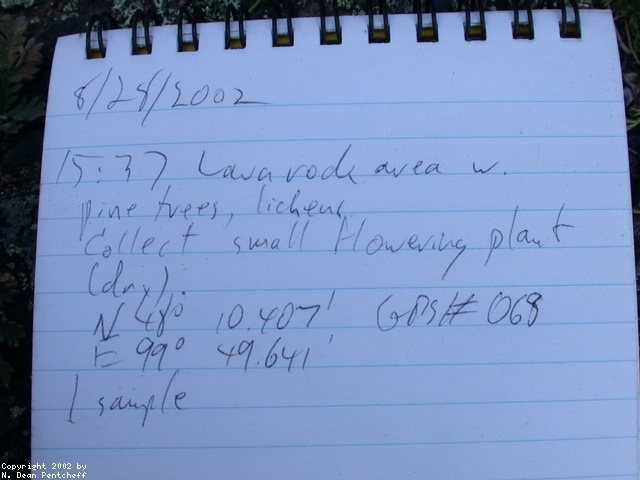 8/28/2002
15:37 Lava rock area w.
pine trees, lichens.
Collect small flowering plant
(dry).
N 48° 10.407' GPS# 068
E 99° 49.641'
1 sample
Copyright 2002 by
N. Dean Pentcheff